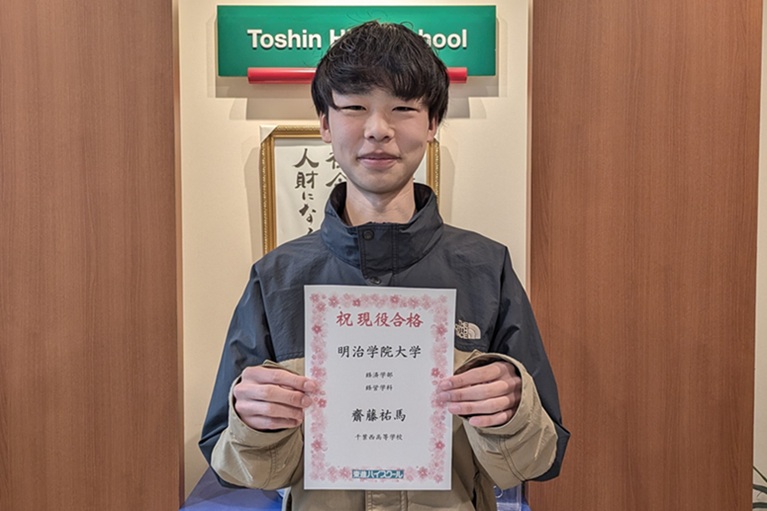 Toshin Hi chool
人財にな
祝 現役合格
明治学院大学
経済学部
経営学科
齋藤祐馬
千葉西高等学校
東進ハイスクール
THE
NORTH
FACE